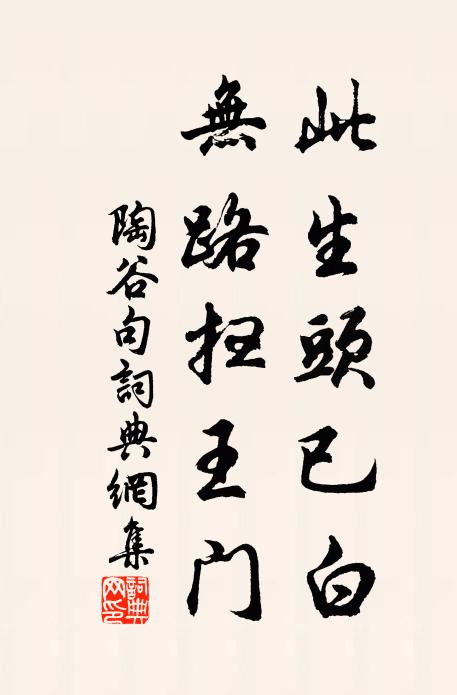 此生頭已白
無路扫王门
陶谷句詞典網集
詞典网印